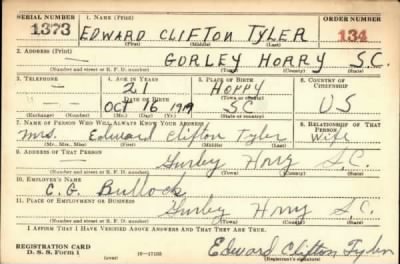 SERIAL NUMBER 1. NAME (Print) ORDER NUMBER
1373 EDWARD CLIFTON TYLER 134
(First) (Middle) (Last)
2. ADDRESS (Print)
— GORLEY HORRY S.C.
(Number and street or R. F. D. number) (Town) (County) (State)
3. TELEPHONE 4. AGE IN YEARS 5. PLACE OF BIRTH 6. COUNTRY OF CITIZENSHIP
— 21 HORRY
DATE OF BIRTH (Town or county)
— OCT 16 1919 SC US
(Exchange) (Number) (Mo.) (Day) (Yr.) (State or country)
7. NAME OF PERSON WHO WILL ALWAYS KNOW YOUR ADDRESS 8. RELATIONSHIP OF THAT PERSON
Mrs. Edward Clifton Tyler Wife
(Mr., Mrs., Miss) (First) (Middle) (Last)
9. ADDRESS OF THAT PERSON
Gurley Horry S.C.
(Number and street or R. F. D. number) (Town) (County) (State)
10. EMPLOYER'S NAME
C. G. Bullock
11. PLACE OF EMPLOYMENT OR BUSINESS
Gurley Horry S.C.
(Number and street or R. F. D. number) (Town) (County) (State)
I AFFIRM THAT I HAVE VERIFIED ABOVE ANSWERS AND THAT THEY ARE TRUE.
REGISTRATION CARD
D. S. S. Form 1 (over) 16—17105 Edward Clifton Tyler
(Registrant's signature)